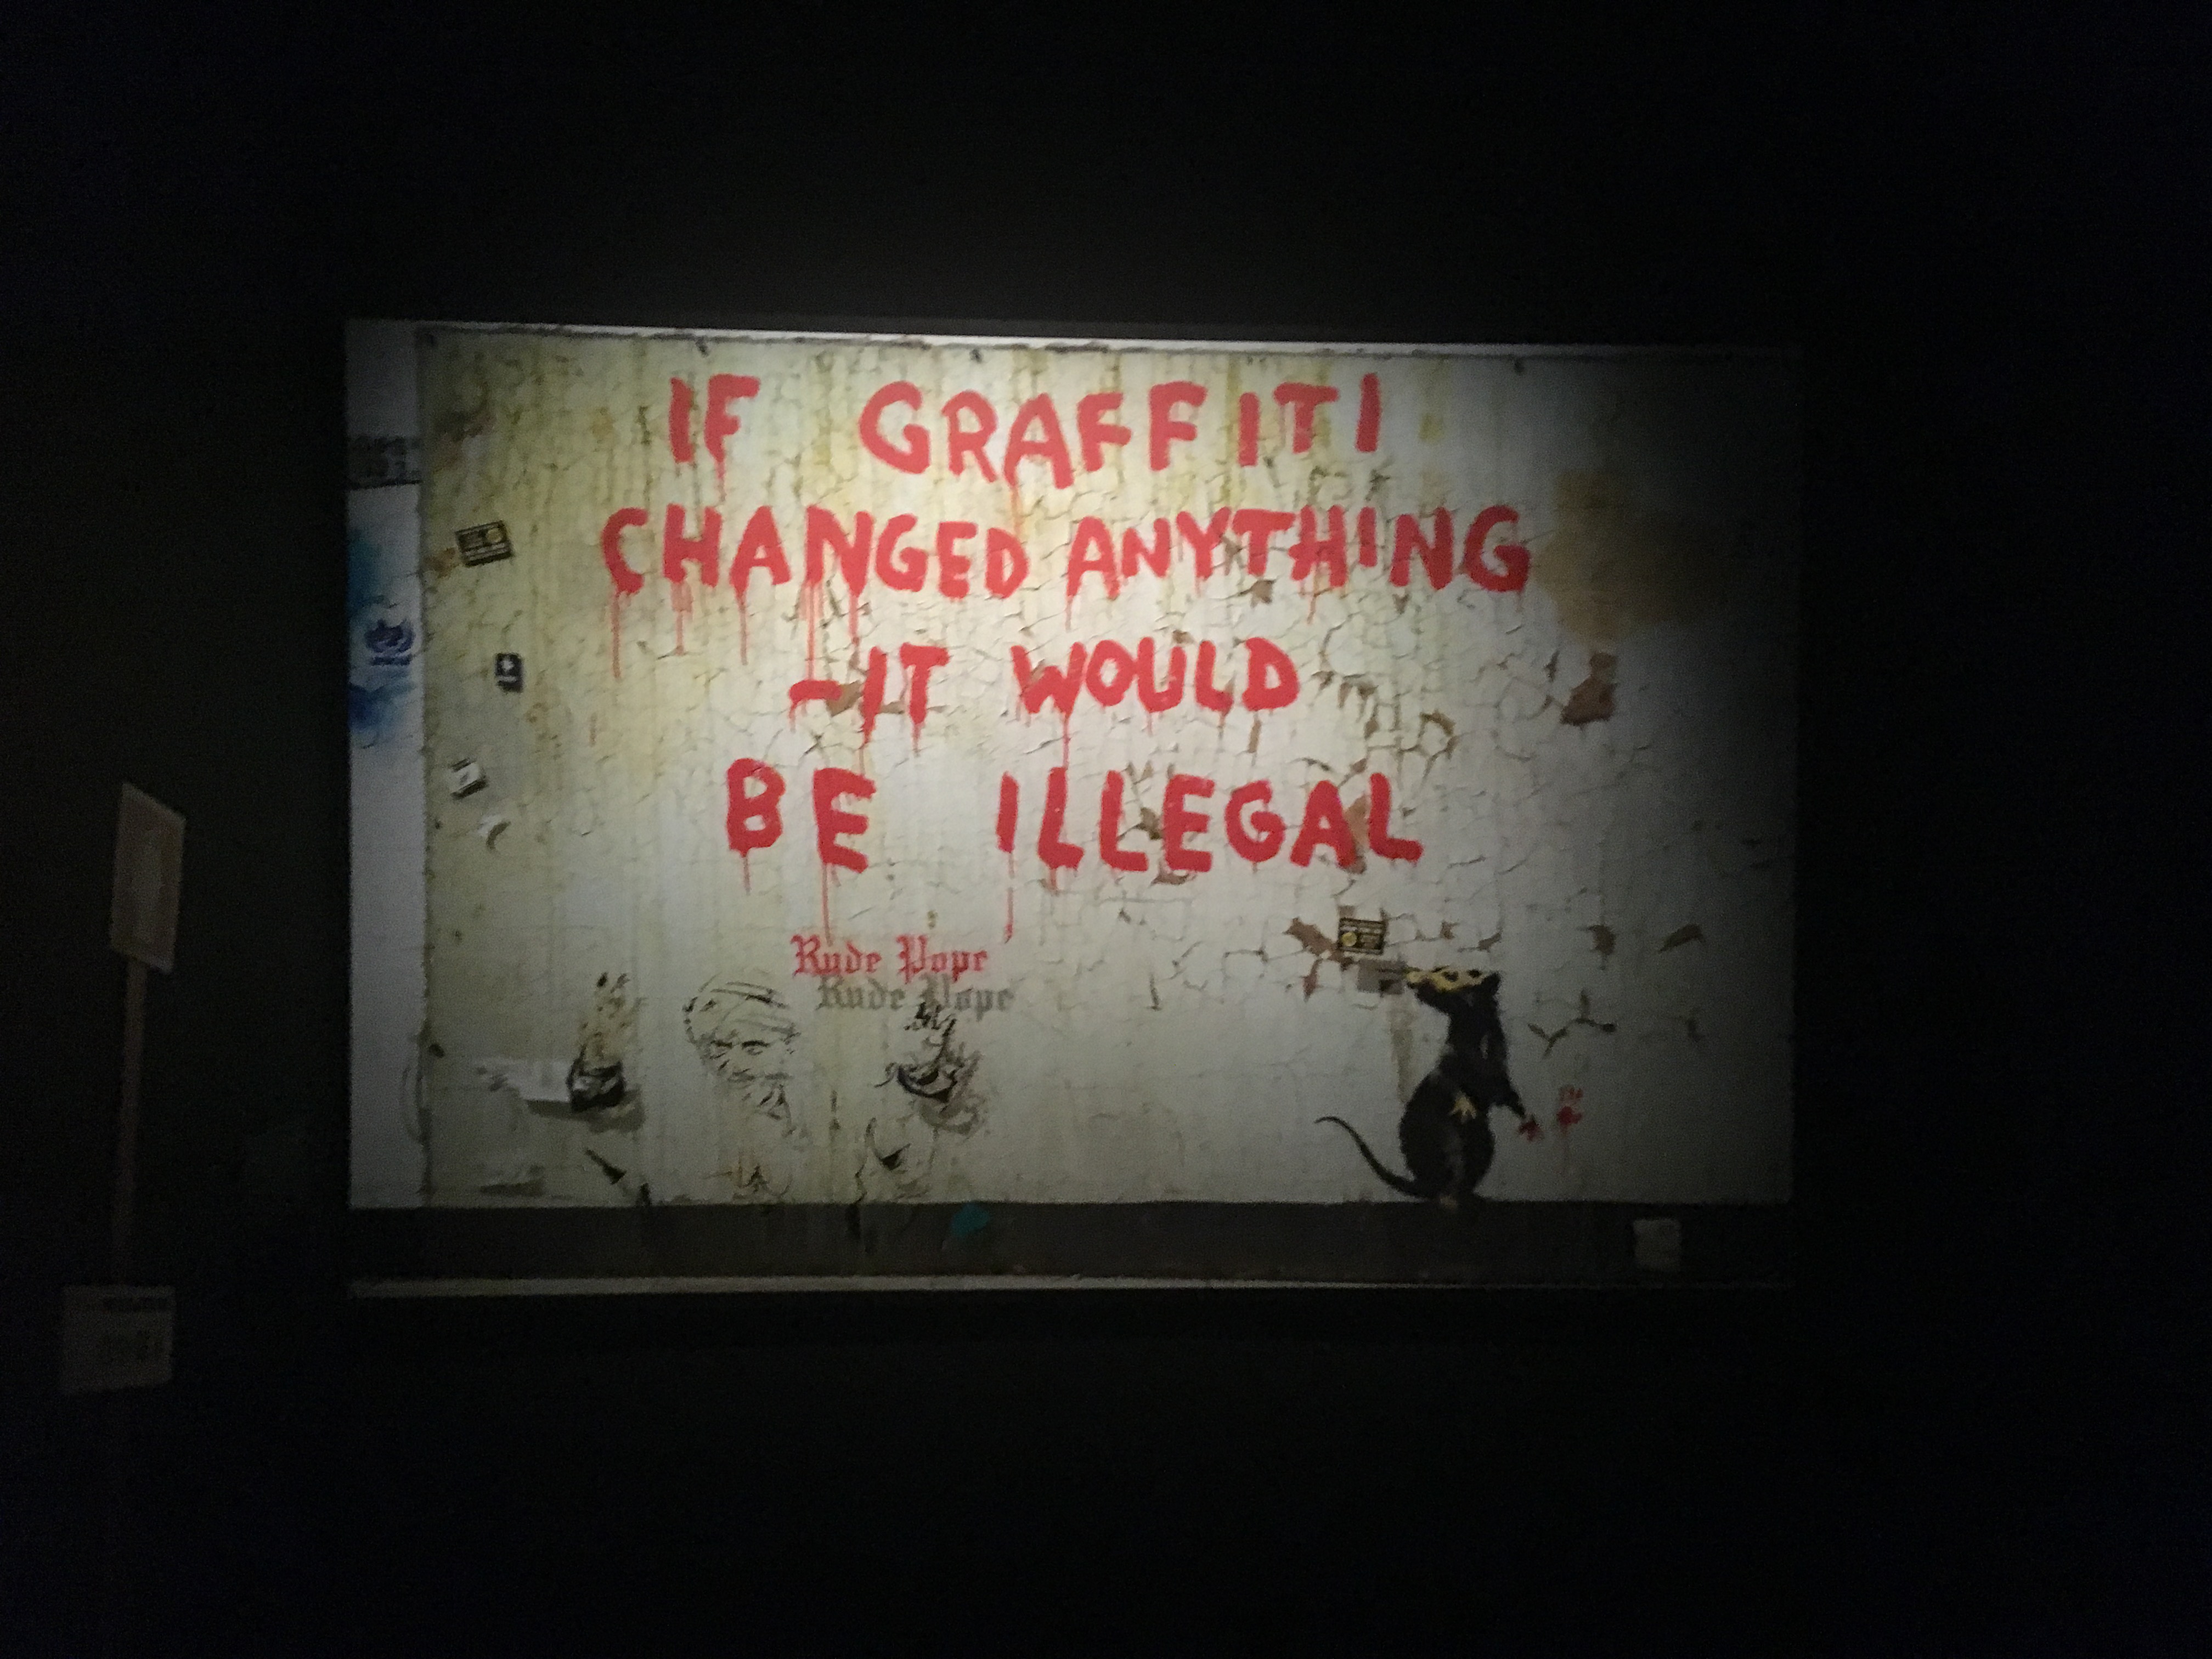 IF GRAFFITI
CHANGED ANYTHING
-IT WOULD
BE ILLEGAL
Rude Pope
Rude Pope